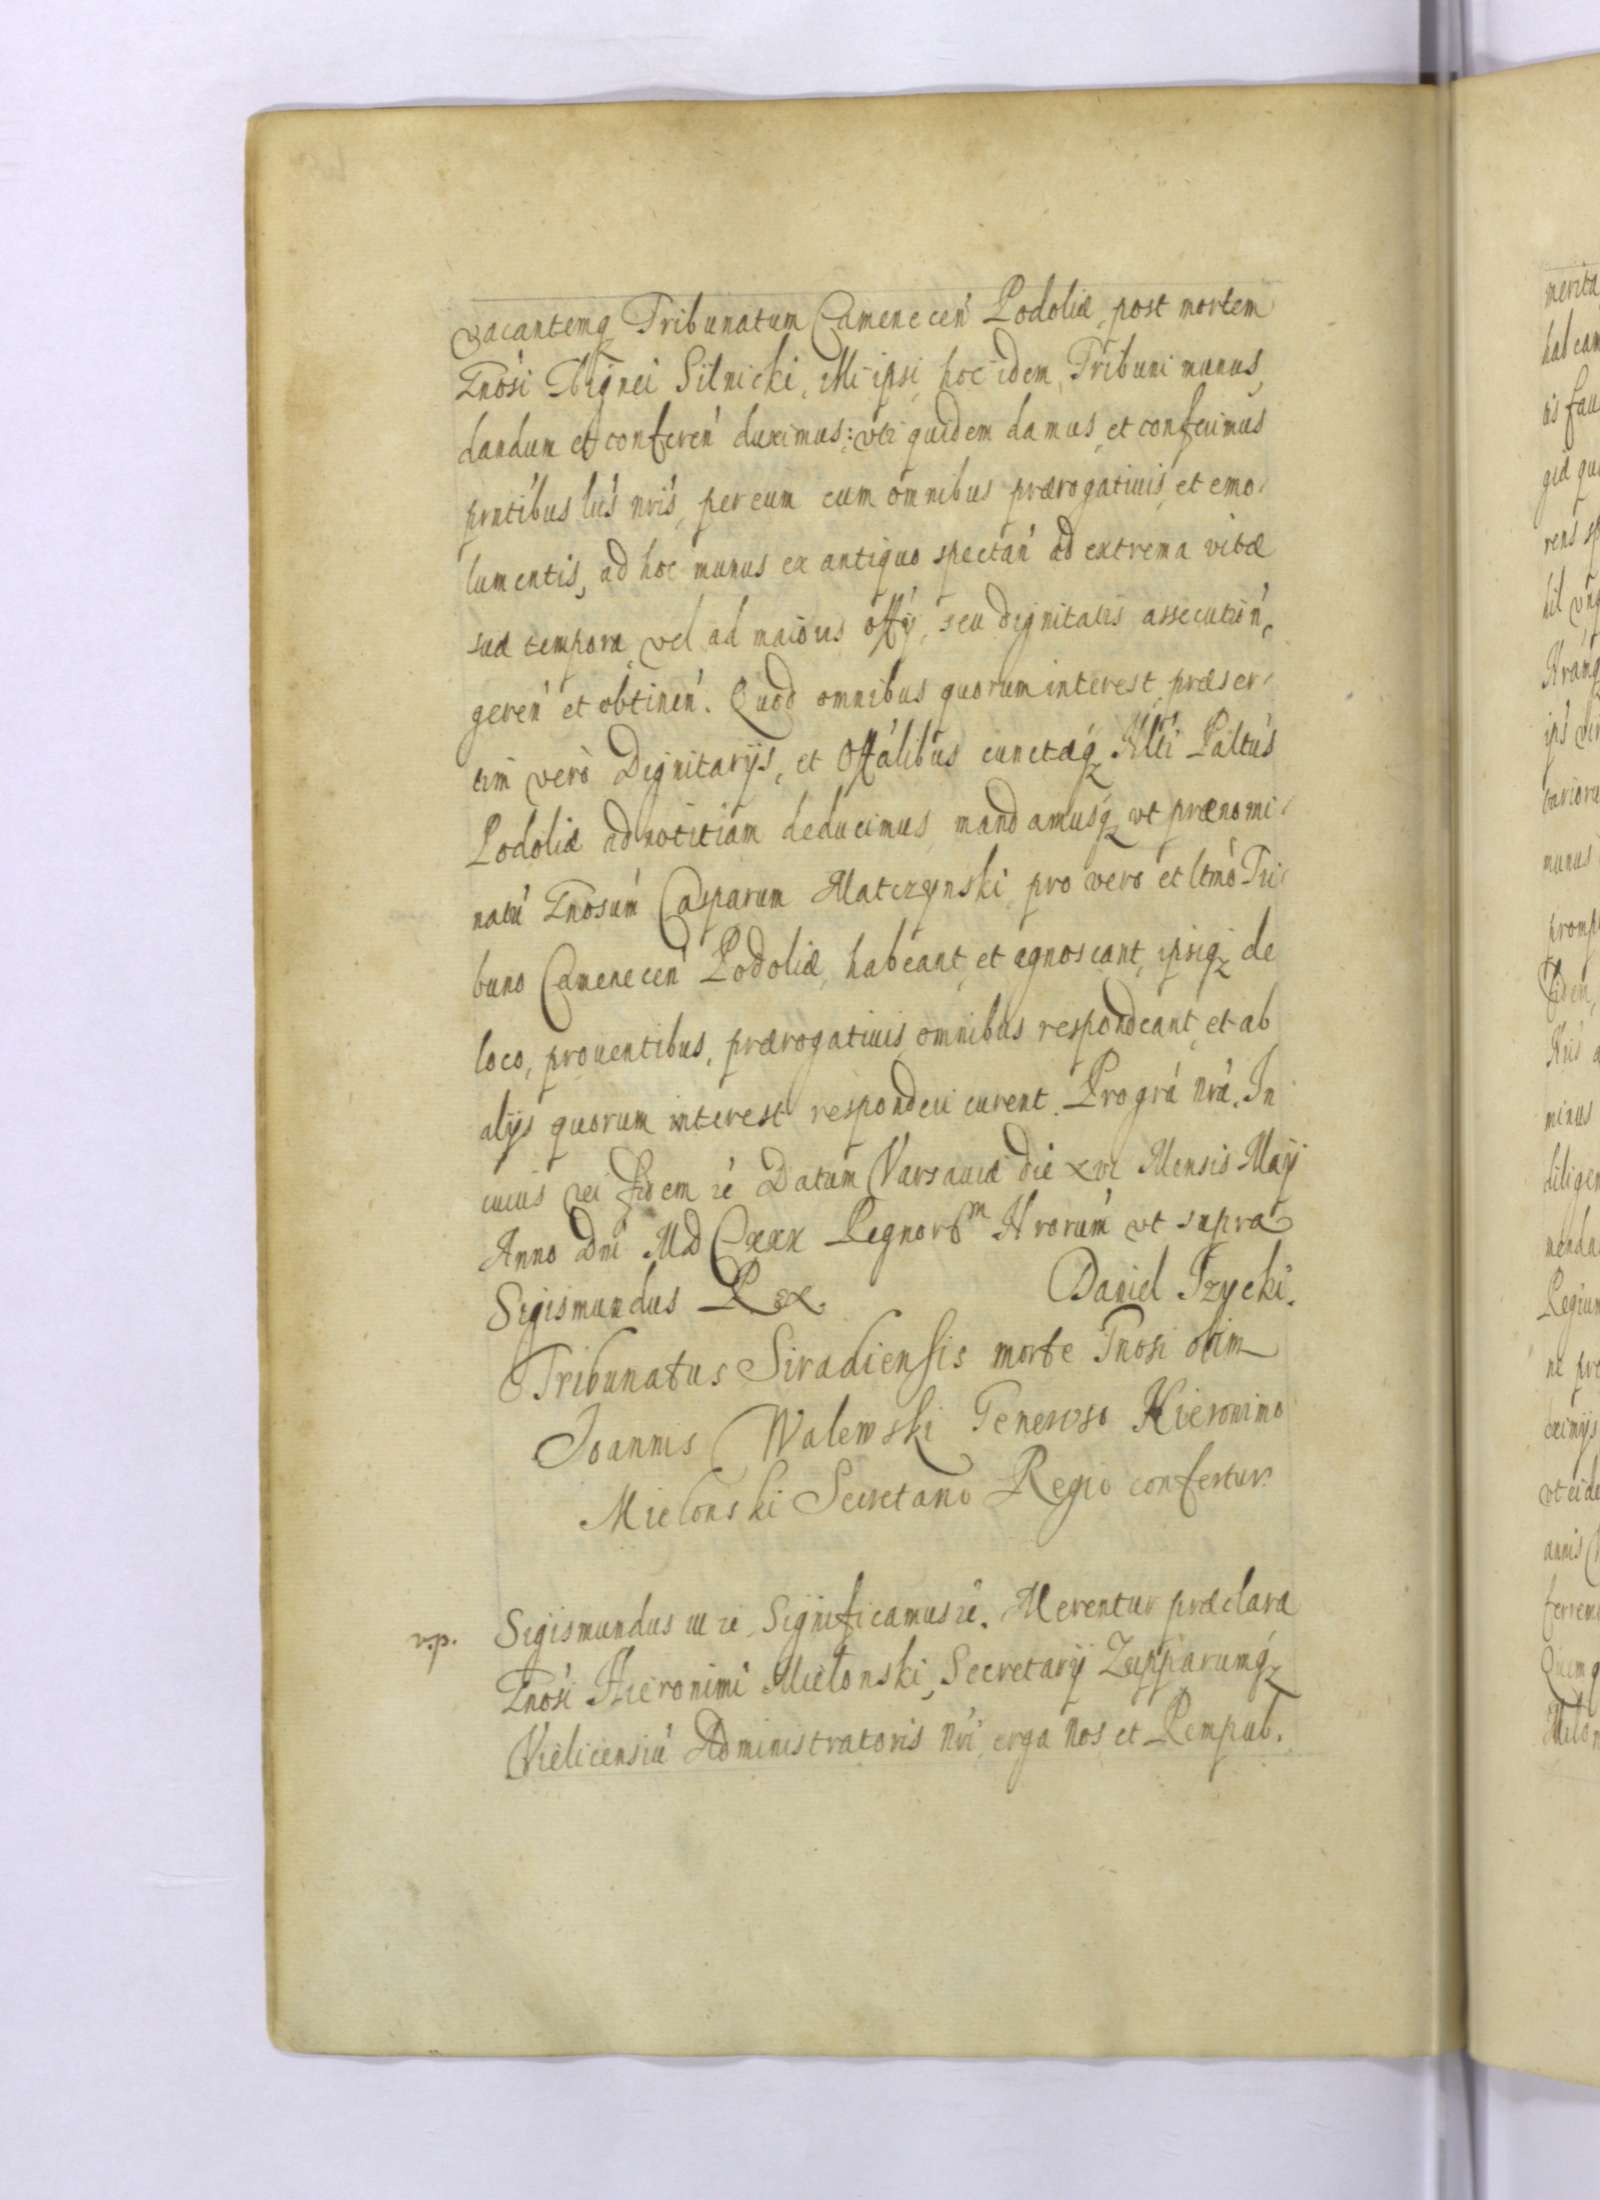 vacantemq Tribunatum Camenecen Podoliæ, post mortem
Gnosi Sbignei Silnicki, illi ipsi, hoc idem, Tribuni munus,
dandum et conferen duximus: vti quidem damus, et conferimus
pntibus lris nris, per eum cum omnibus prærogatiuis, et emo-
lumentis, ad hoc munus ex antiquo spectan ad extrema vitæ
suæ tempora, vel ad maioris offy, seu dignitatis assecution,
geren et obtinen. Quod omnibus quorum interest, præser-
tim verò Dignitarijs, et Offalibus cunctæq Nlti Paltus
Podoliæ ad notitiam deducimus, mandamusq vt prænomi-
natu Gnosum Casparum Matczynski, pro vero et ltmo Tri-
buno Camenecen Podoliæ, habeant, et agnoscant, ipsiq de
loco, prouentibus, prærogatiuis omnibus respondeant, et ab
alijs quorum interest responderi curent. Pro gra nra. In
cuius rei fidem ze Datum Varsauiæ die xvi Mensis Maij
Anno Dni MDCxxx Regnorum Nrorum vt supra
Sigismundus Rex. Daniel Izycki.
Tribunatus Siradiensis morte Gnosi olim
Joannis Walewski Generoso Hieronimo
Mielonski Secretario Regio confertur.
v.p. Sigismundus iii ze, Significamus ze. Merentur præclara
Gnosi Hieronimi Mielonski, Secretarij Zupparumq
Vielicensiu Administratoris Nri, erga Nos et Rempub.
merita
habeam